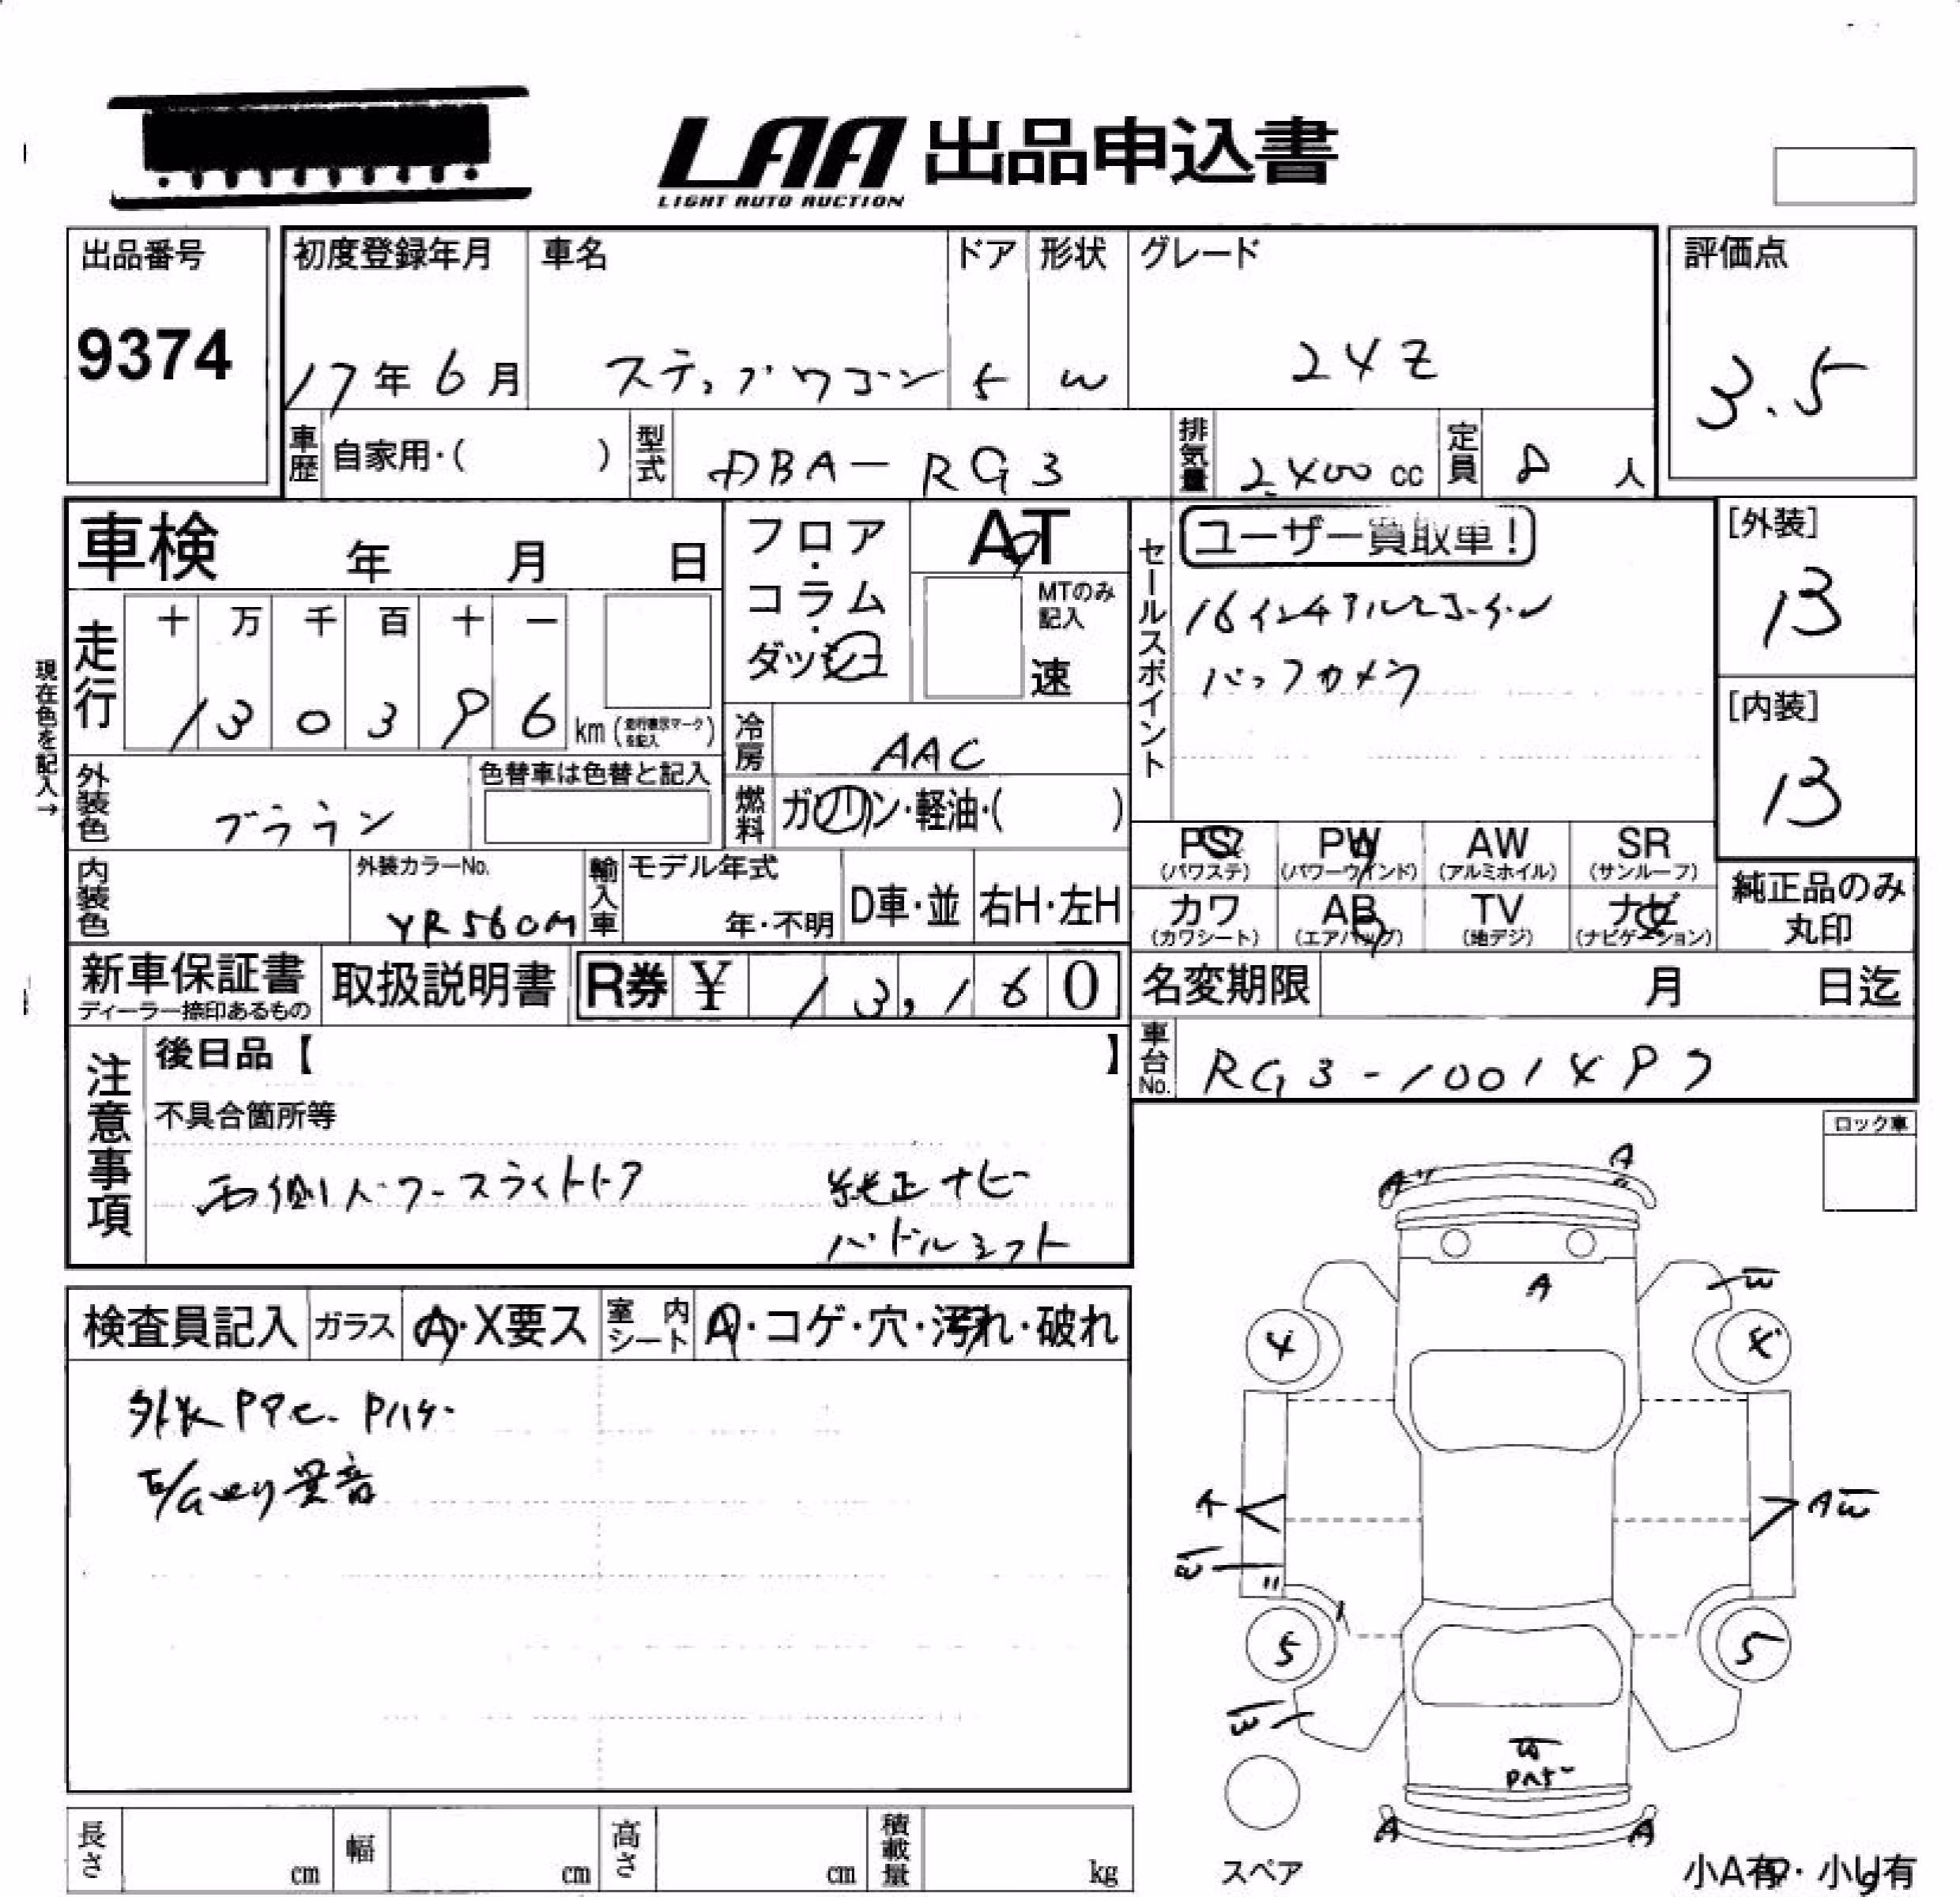 LAA 出品申込書
LIGHT AUTO AUCTION
出品番号
9374
初度登録年月
17年6月
車名
ステップワゴン
ドア
5
形状
W
グレード
24Z
評価点
3.5
車歴
自家用・( )
型式
DBA-RG3
排気量
2400cc
定員
8人
車検 年 月 日
フロア・コラム・ダッシュ
AT
MTのみ記入
速
セールスポイント
ユーザー買取車!
16インチアルミ
バックカメラ
[外装]
B
[内装]
B
現在色を記入→
走行
十 万 千 百 十 一
1 3 0 3 9 6
km (走行表示マークを記入)
冷房
AAC
外装色
ブラウン
色替車は色替と記入
燃料
ガソリン・軽油・( )
PS (パワステ)
PW (パワーウインド)
AW (アルミホイル)
SR (サンルーフ)
カワ (カワシート)
AB (エアバッグ)
TV (地デジ)
ナビ (ナビゲーション)
純正品のみ丸印
内装色
外装カラーNo.
YR560M
輸入車
モデル年式
年・不明
D車・並
右H・左H
新車保証書
ディーラー捺印あるもの
取扱説明書
R券 ¥ 13,160
名変期限 月 日迄
車台No.
RG3-1001497
注意事項
後日品【 】
不具合箇所等
両側パワースライドドア 純正ナビ
パドルシフト
ロック車
検査員記入
ガラス
A・X要ス
室内シート
A・コゲ・穴・汚れ・破れ
外装 P
E/Gより異音
A"
A
"
A
W
4
4
A
AW
W
"
5
5
W
W
A
A
スペア
長さ cm
幅 cm
高さ cm
積載量 kg
小A有・小U有